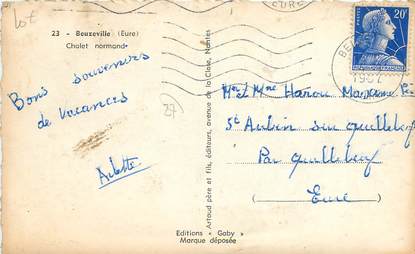 lot
23 - Beuzeville (Eure)
Chalet normand
Bons souvenirs
de vacances
Arlette
27
Artaud père et fils, éditeurs, avenue de la Close, Nantes
Editions « Gaby »
Marque déposée
EURE
20F
1957
Mr et Mme Harou
St Aubin sur Quillebeuf
Par Quillebeuf
Eure